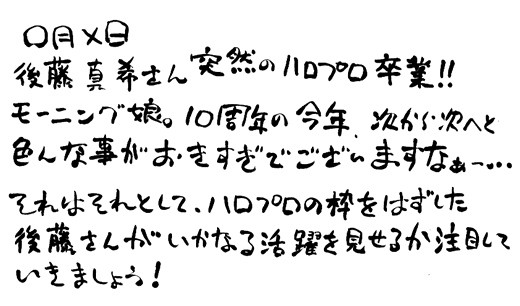 〇月×日
後藤真希さん突然のハロプロ卒業!!
モーニング娘。10周年の今年、次から次へと
色んな事がおきすぎでございますなぁー…
それはそれとして、ハロプロの枠をはずした
後藤さんがいかなる活躍を見せるか注目して
いきましょう!